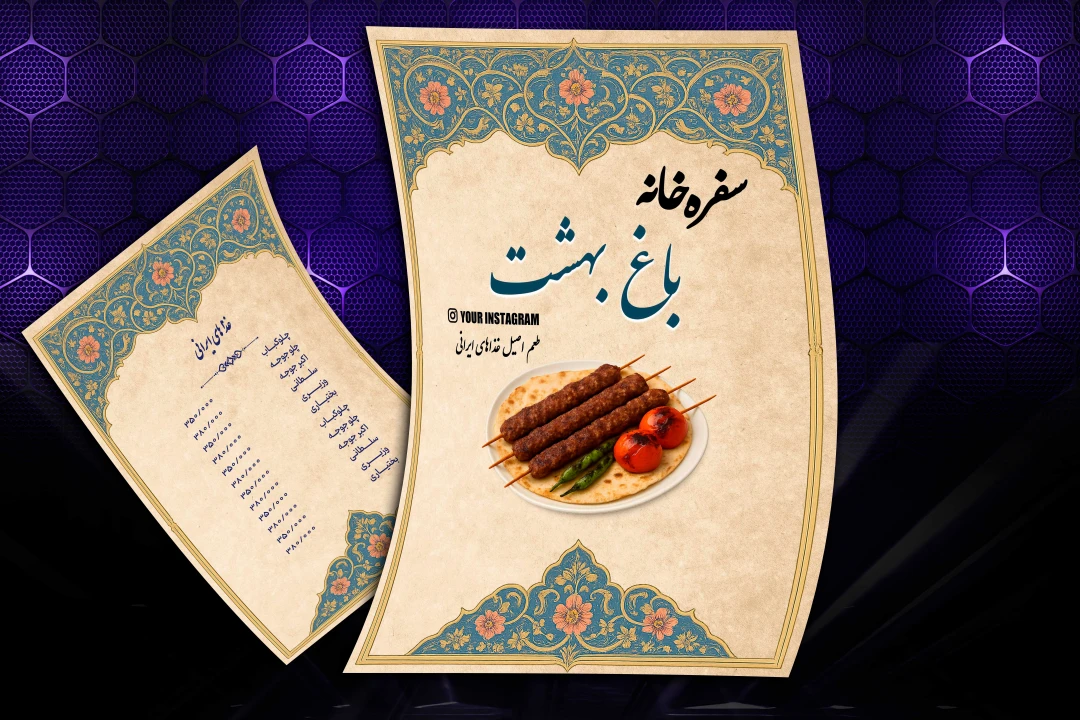 سفره‌خانه
باغ بهشت
YOUR INSTAGRAM
طعم اصیل غذاهای ایرانی
غذاهای ایرانی
چلوکباب ۳۵۰/۰۰۰
چلو جوجه ۳۸۰/۰۰۰
اکبر جوجه ۳۵۰/۰۰۰
سلطانی ۳۸۰/۰۰۰
وزیری ۳۵۰/۰۰۰
بختیاری ۳۸۰/۰۰۰
چلوکباب ۳۵۰/۰۰۰
چلو جوجه ۳۸۰/۰۰۰
اکبر جوجه ۳۵۰/۰۰۰
سلطانی ۳۸۰/۰۰۰
وزیری ۳۵۰/۰۰۰
بختیاری ۳۸۰/۰۰۰